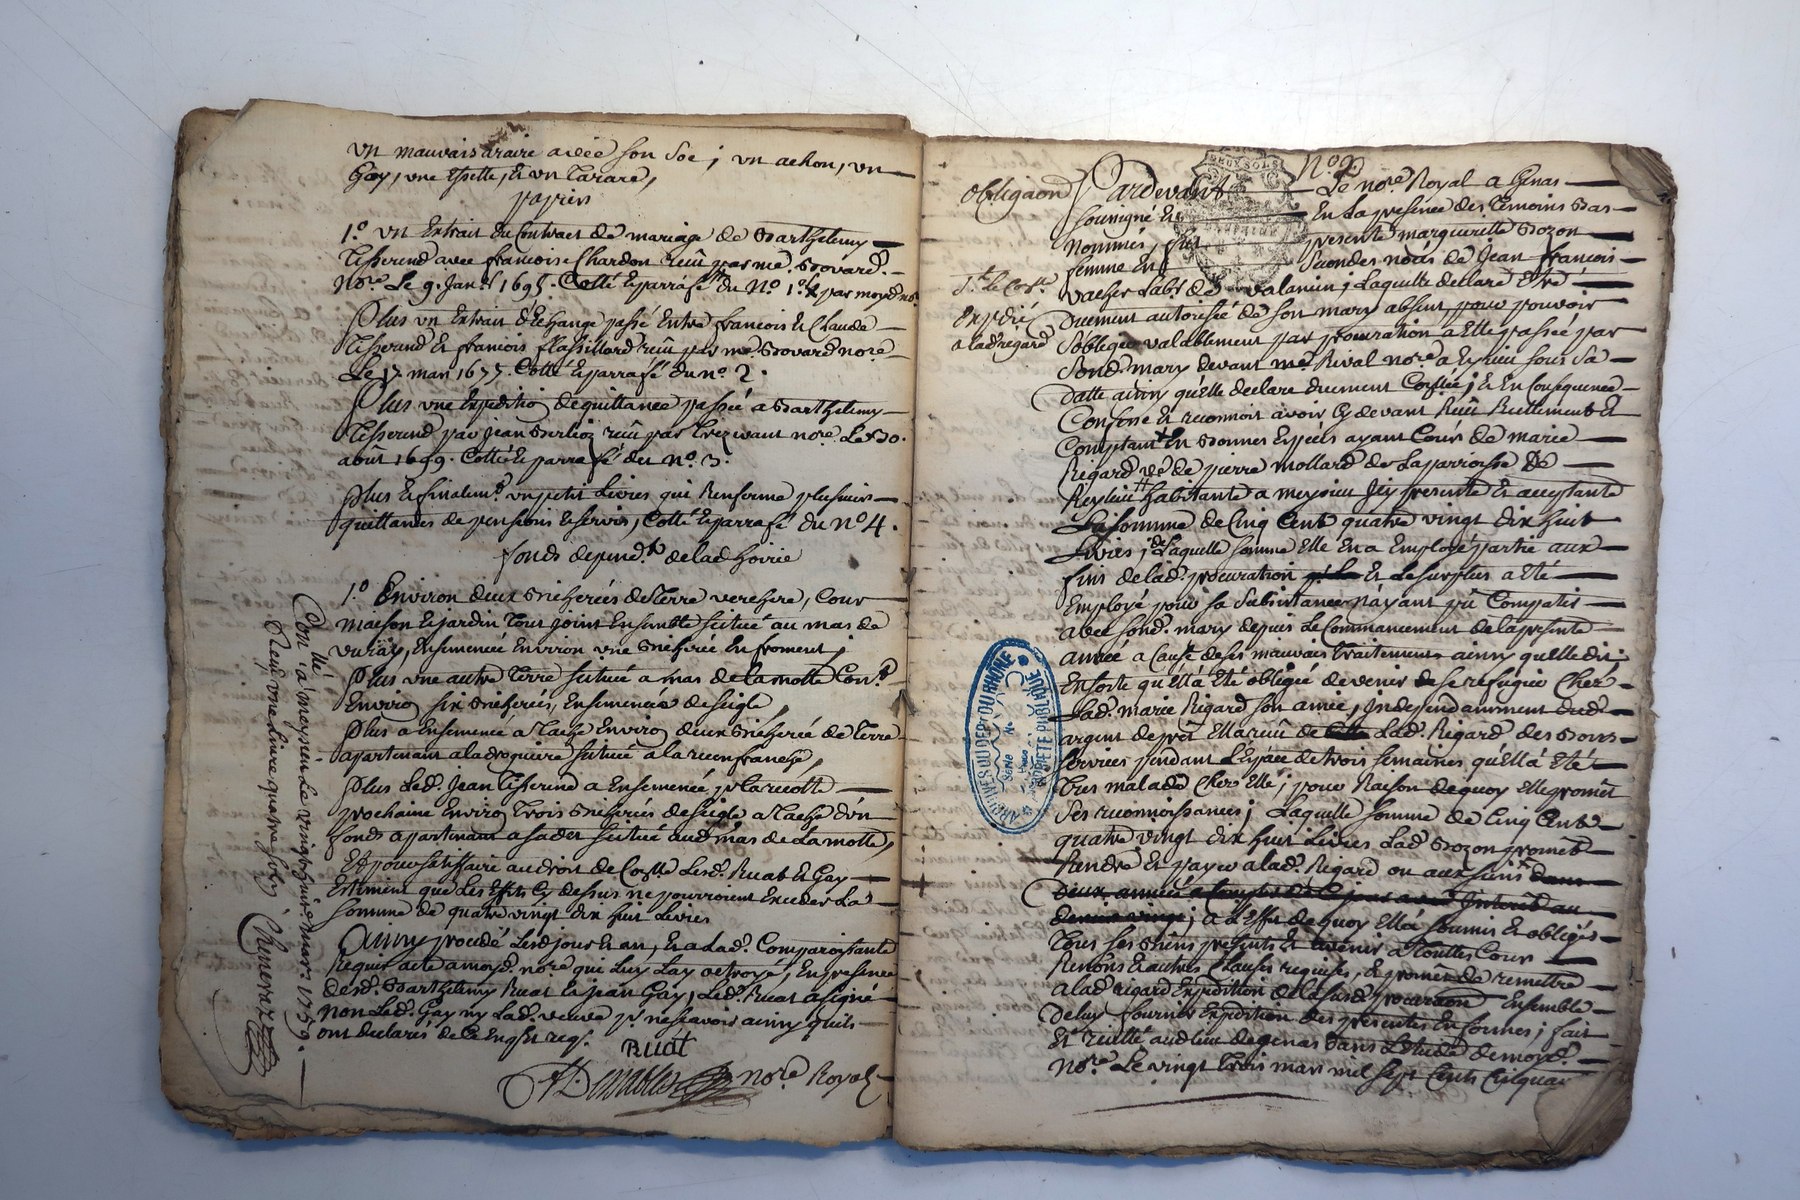 un mauvais araire avec son soc ; un achon, un
Goy, une Essette, et un Tarare,
papiers
1.º un Extrait du Contract de mariage de Barthelemy
Tisserend avec francoise Chardon reçû par me. Bovard
Nore. Le 9. Janr. 1695. Cotté et parrafé du Nº. 1er. par moyd. nore
Plus un Extrait d'Echange passé Entre francois et Claude
Tisserend et francois reçû par me. Bovard nore
Le 17 mars 1675. Cotté et parrafé du nº. 2.
Plus une Expeditio de quittance passée a Barthelemy
Tisserend par Jean Berlioz reçû par nore. Le 30.
août 1699. Cotté et parrafé du nº. 3.
Plus et finalemt. un petit Livres qui Renferme plusieurs
quittances de pensions et servis, Cotté et parrafé du Nº 4.
fonds dependts. de lad. hoirie
1.º Environ deux Bicherées de Terre verchere, Cour
maison et jardin Tout joint Ensemble situé au mas de
, Ensemencée Environ une Bicherée En froment ;
Plus une autre Terre située a mas de la motte Cont.
Enviro six Bicherées, Ensemencée de seigle,
Plus a Ensemencé a Tache Enviro deux Bicherée de Terre
apartenant a située a la ,
Plus Led. Jean Tisserend a Ensemencé pr. La recolte
prochaine Enviro Trois Bicherées de seigle a Tache d'un
fonds appartenant a située aud. mas de La motte,
Et pour satisfaire au droit de Lesd. Ruat et Gay
Estiment que Les Effets Cy dessus ne pourroient Exceder La
somme de quatre vingt dix huit Livres
Ainsy procedé Lesd. jour et an, Et a Lad. Comparoissante
Requis acte a moyd. nore qui Luy L'ay octroyé, En presence
desd. Barthelemy Ruat et Jean Gay, Led. Ruat a signé
non Led. Gay ny Lad. veuve pr. ne scavoir ainsy qu'ils
ont declarés de Ce Enqs. et reqs.
Ruat
nore. Royal
Conlé
a meyzieu Le vingt huit mars 1759.
Reçu une Livre quatre sols
Nº. 2
obligaon
Pardevant Le nore. Royal a Genas
soussigné Et En La presence des Temoins Bas
Nommés, fut presente marguerite Bozon
femme En secondes nôces de Jean francois
vacher Labr. de valancin ; Laquelle declare Etre
duement autorisée de son mary absent, pour pouvoir
s'obliger valablement par procuration a Elle passée par
Sond. mary devant me. Rival nore. a Heyrieu sous Sa
datte ainsy qu'elle declare duement Corllée ; Et En Consequence
Confesse Et reconnoit avoir Cy devant Reçû Reellement Et
Comptant En Bonnes Especes ayant Cour de marie
Rigard ve. de pierre mollard de La parroisse de
habitante a meyzieu Icy presente Et acceptante
La somme de Cinq Cent quatre vingt dix huit
Livres ; de Laquelle somme Elle En a Employé partie aux
fins de lad. procuration Et Le surplus a Eté
Employé pour sa subsistance n'ayant pû Compatir
avec sond. mary depuis Le Commancement de la presente
année a Cause de ses mauvais traitements ainsy qu'elle dit
En sorte qu'Ell'a Eté obligée de venir se refugier Chez
Lad. marie Rigard son amie ; Independamment dud.
argent de prêt Ell'a reçû de Lad. Rigard des Bons
services pendant L'Espace de trois semaines qu'Ell'a Eté
Tres malade Chez Elle ; pour Raison de quoy Elle promet
Ses reconnoissances ; Laquelle somme de Cinq Cent
quatre vingt dix huit Livres Lad. Bozon promet
Rendre Et payer a lad. Rigard ou aux siens dans
deux années a Compter de Ce jour avec Interêt au
denier vingt ; a L'Effet de quoy Ell'a soumis Et obligés
Tous ses Biens presents Et avenir a Touttes Cour
Renons. Et autres Clauses requises, Et promet de remettre
a lad. Rigard Expedition de la susd. procuraon Ensemble
De luy fournir Expedition des presentes En formes ; fait
Et recitté aud. Lieu de genas dans L'Etude de moyd.
Nore. Le vingt Trois mars mil sept Cents Cinquan
Expedié
a lad. rigard
ARCHIVES DU DEPT DU RHÔNE
PROPRIÉTÉ PUBLIQUE